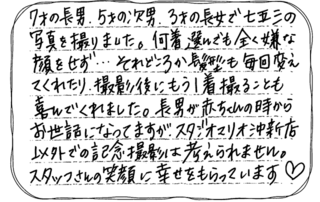 7才の長男、5才の次男、3才の長女で七五三の
写真を撮りました。何着選んでも全く嫌な
顔をせず…それどころか髪型も毎回変え
てくれたり、撮影後にもう1着撮ることも
喜んでくれました。長男が赤ちゃんの時から
お世話になってますがスタジオマリオ沖新店
以外での記念撮影は考えられません。
スタッフさんの笑顔に幸せをもらっています♡